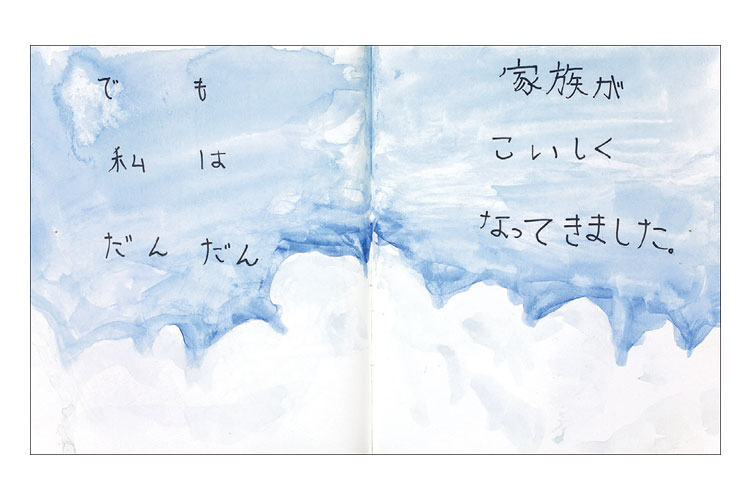 でも
私は
だんだん
家族が
こいしく
なってきました。